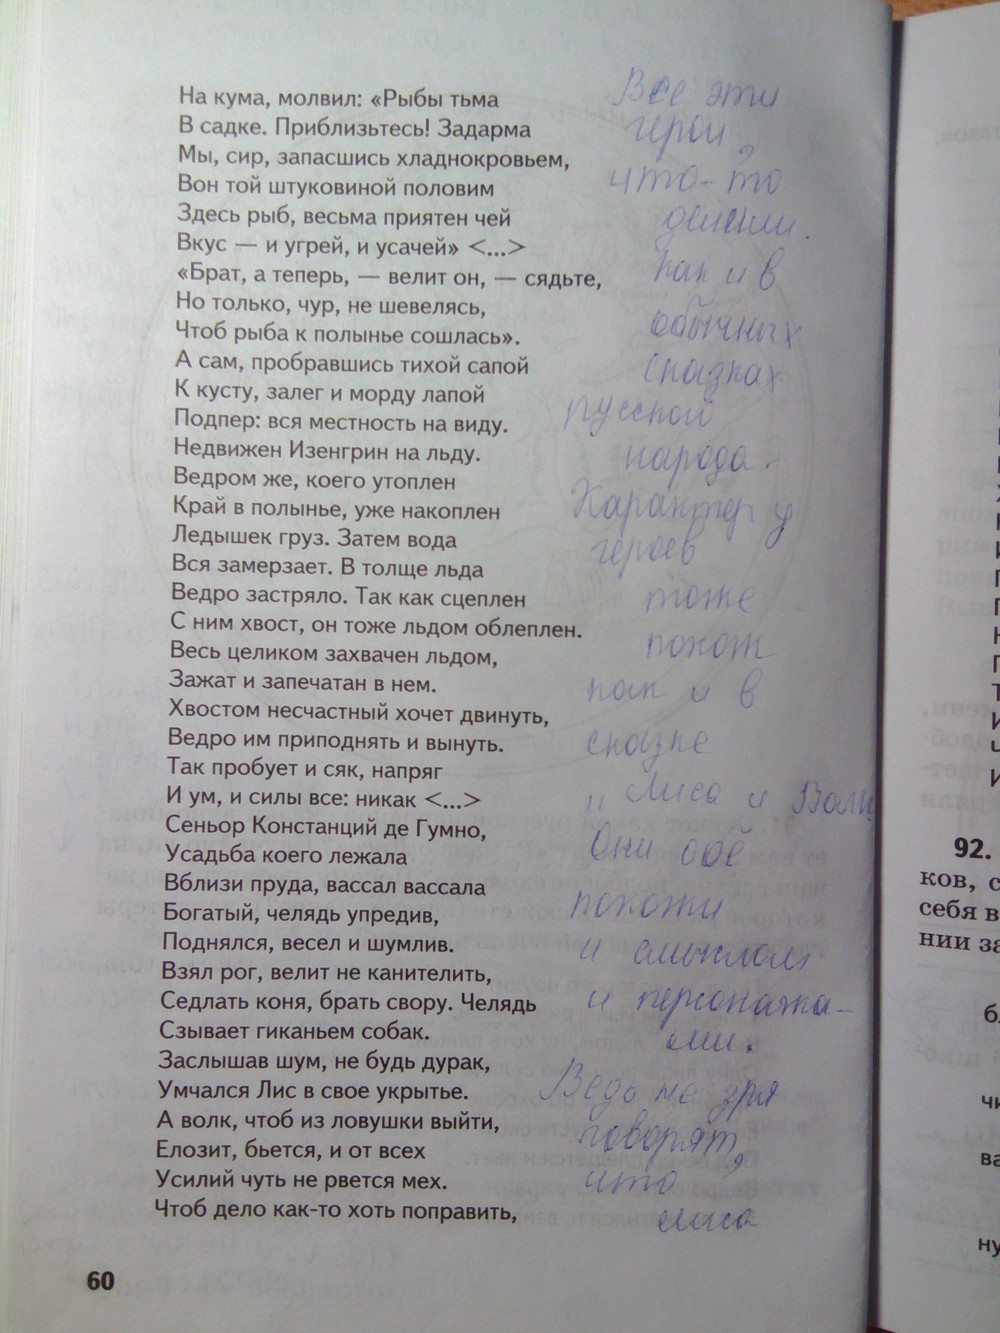 На кума, молвил: «Рыбы тьма
В садке. Приблизьтесь! Задарма
Мы, сир, запасшись хладнокровьем,
Вон той штуковиной половим
Здесь рыб, весьма приятен чей
Вкус — и угрей, и усачей» <...>
«Брат, а теперь, — велит он, — сядьте,
Но только, чур, не шевелясь,
Чтоб рыба к полынье сошлась».
А сам, пробравшись тихой сапой
К кусту, залег и морду лапой
Подпер: вся местность на виду.
Недвижен Изенгрин на льду.
Ведром же, коего утоплен
Край в полынье, уже накоплен
Ледышек груз. Затем вода
Вся замерзает. В толще льда
Ведро застряло. Так как сцеплен
С ним хвост, он тоже льдом облеплен.
Весь целиком захвачен льдом,
Зажат и запечатан в нем.
Хвостом несчастный хочет двинуть,
Ведро им приподнять и вынуть.
Так пробует и сяк, напряг
И ум, и силы все: никак <...>
Сеньор Констанций де Гумно,
Усадьба коего лежала
Вблизи пруда, вассал вассала
Богатый, челядь упредив,
Поднялся, весел и шумлив.
Взял рог, велит не канителить,
Седлать коня, брать свору. Челядь
Сзывает гиканьем собак.
Заслышав шум, не будь дурак,
Умчался Лис в свое укрытье.
А волк, чтоб из ловушки выйти,
Елозит, бьется, и от всех
Усилий чуть не рвется мех.
Чтоб дело как-то хоть поправить,
60
Все эти
герои,
что-то
делили.
как и в
обычных
сказках
русского
народа.
Характер у
героев
тоже
похож
как и в
сказке
"Лиса и Волк
Они обе
похожи
и смыслом
и персонажа-
ми.
Ведь не зря
говорят,
что
лиса
92.
ков, с
себя в
нии за